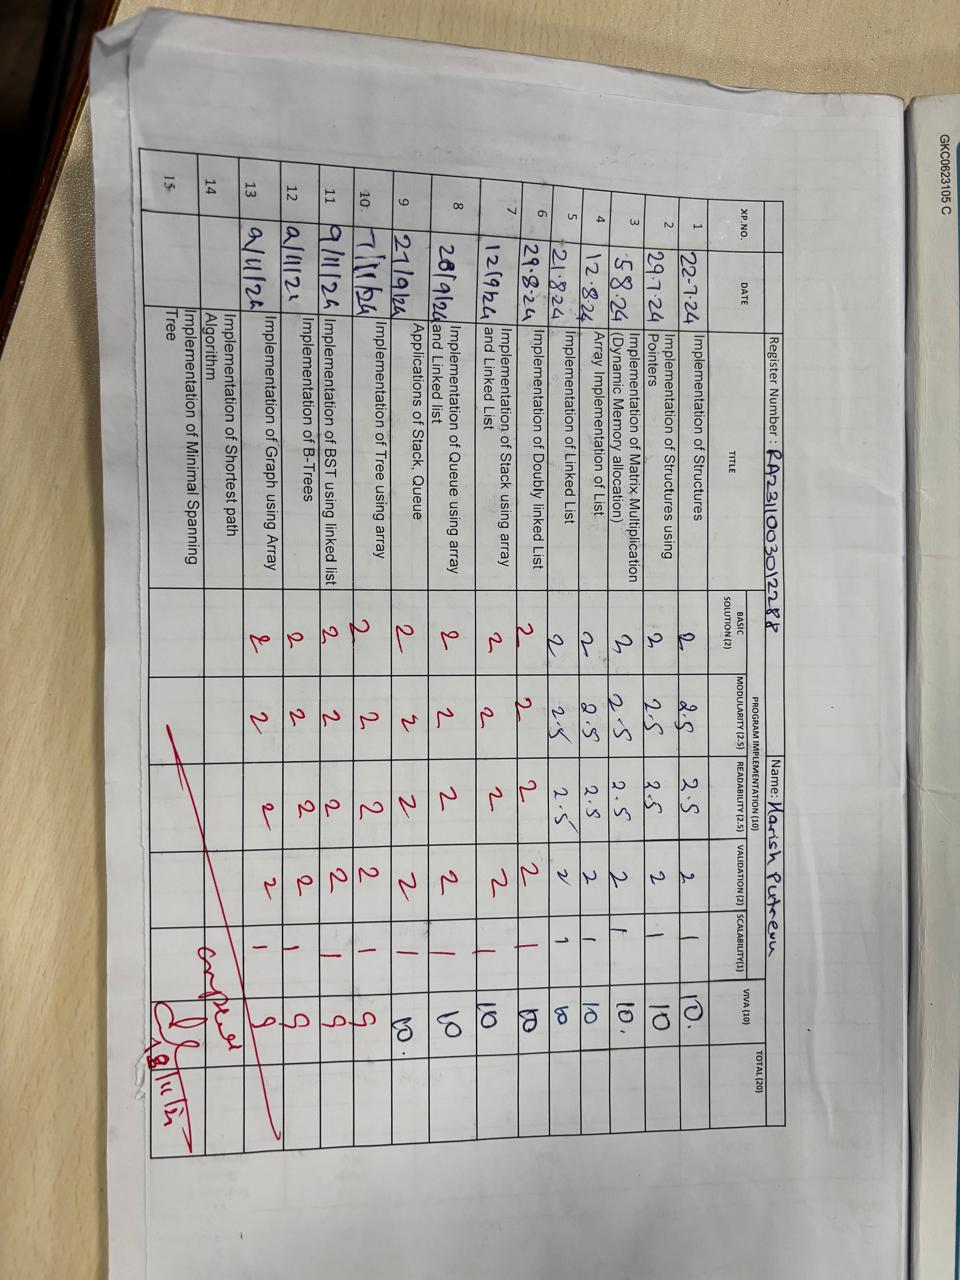 GKC0623105 C
Register Number : RA2311003012288 Name: Harish Putrevu
XP.NO. DATE TITLE PROGRAM IMPLEMENTATION (10) VIVA (10) TOTAL (20)
BASIC SOLUTION (2) MODULARITY (2.5) READABILITY (2.5) VALIDATION (2) SCALABILITY(1)
1 22-7-24 Implementation of Structures 2 2.5 2.5 2 1 10.
2 29.7.24 Implementation of Structures using Pointers 2 2.5 2.5 2 1 10
3 5 8.24 Implementation of Matrix Multiplication (Dynamic Memory allocation) 2 2.5 2.5 2 1 10.
4 12.8.24 Array Implementation of List 2 2.5 2.5 2 1 10
5 21.8.24 Implementation of Linked List 2 2.5 2.5 2 1 10
6 29.8.24 Implementation of Doubly linked List 2 2 2 2 1 10
7 12/9/24 Implementation of Stack using array and Linked List 2 2 2 2 1 10
8 20/9/24 Implementation of Queue using array and Linked list 2 2 2 2 1 10
9 27/9/24 Applications of Stack, Queue 2 2 2 2 1 10.
10. 7/11/24 Implementation of Tree using array 2 2 2 2 1 9
11 9/11/24 Implementation of BST using linked list 2 2 2 2 1 9
12 9/11/24 Implementation of B-Trees 2 2 2 2 1 9
13 9/11/24 Implementation of Graph using Array 2 2 2 2 1 9
14 Implementation of Shortest path Algorithm
15 Implementation of Minimal Spanning Tree
18/11/24